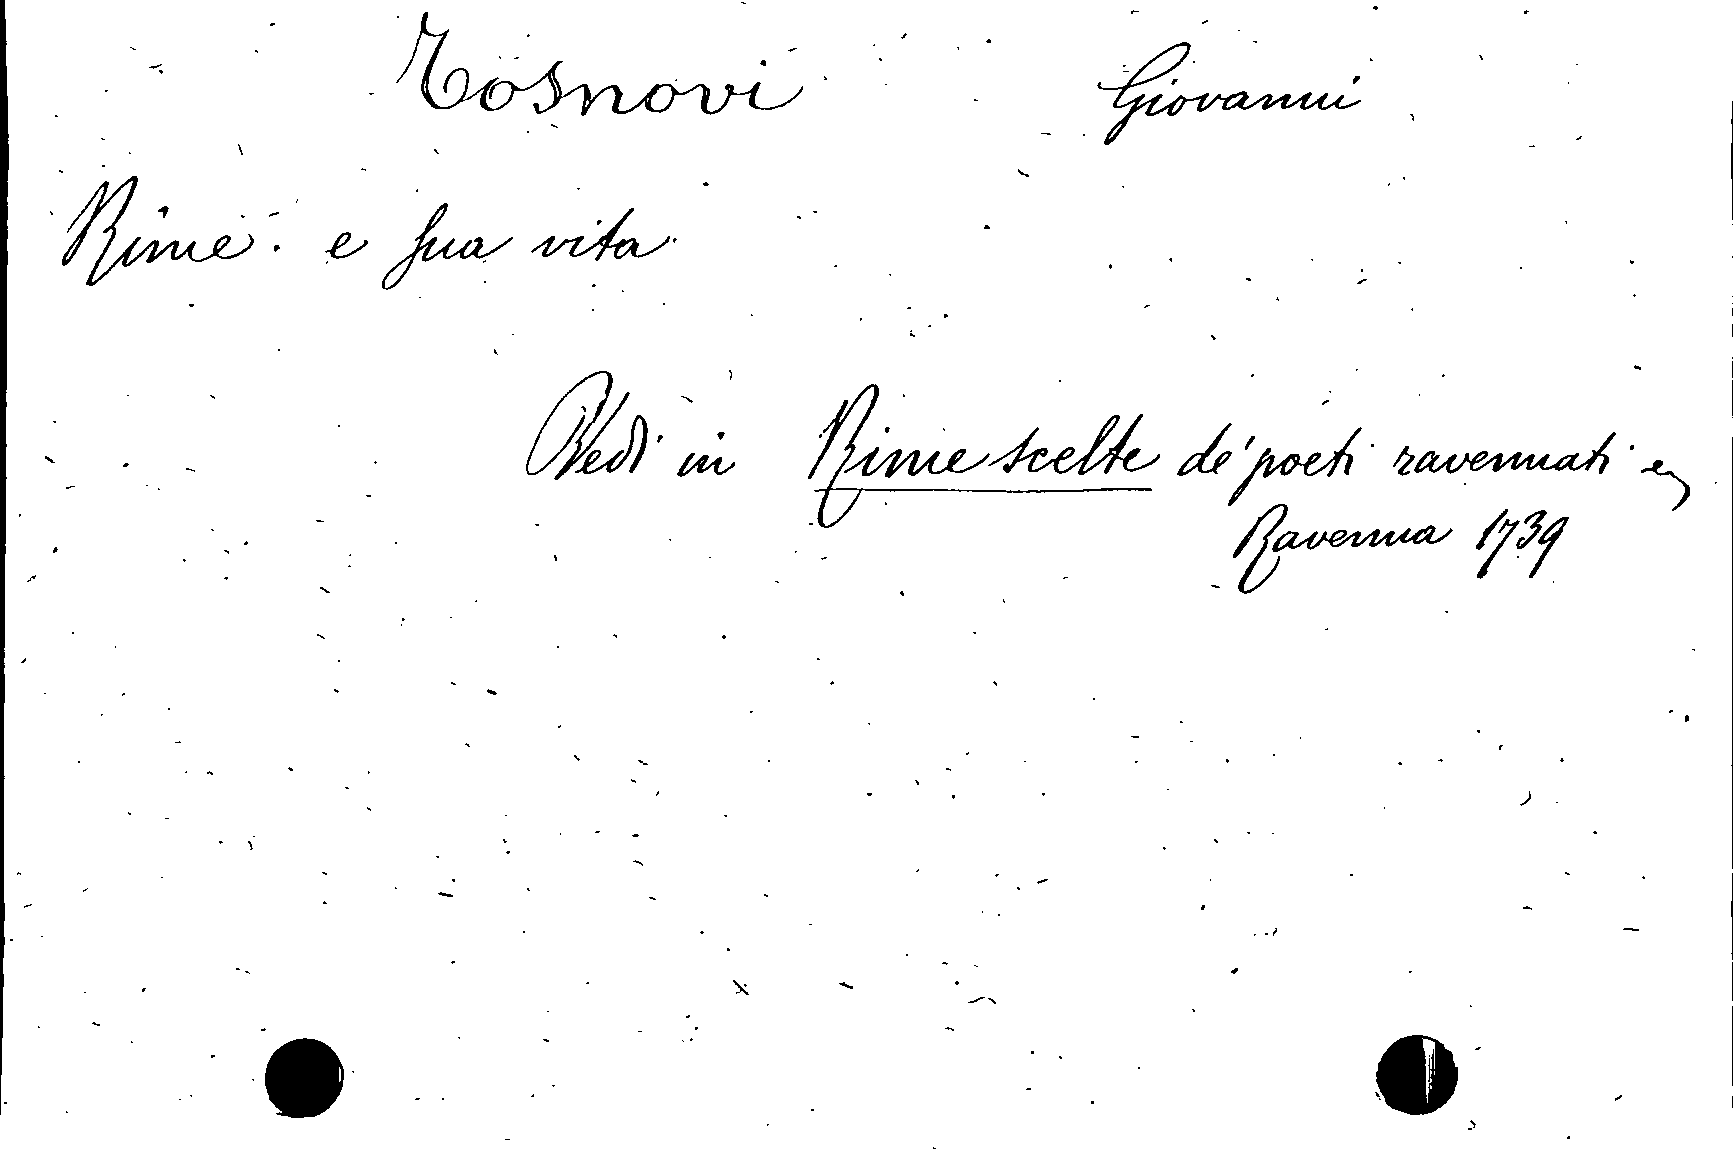 Tosnovi Giovanni
Rime. e sua vita
Vedi in Rime scelte de' poeti ravennati e
Ravenna 1739